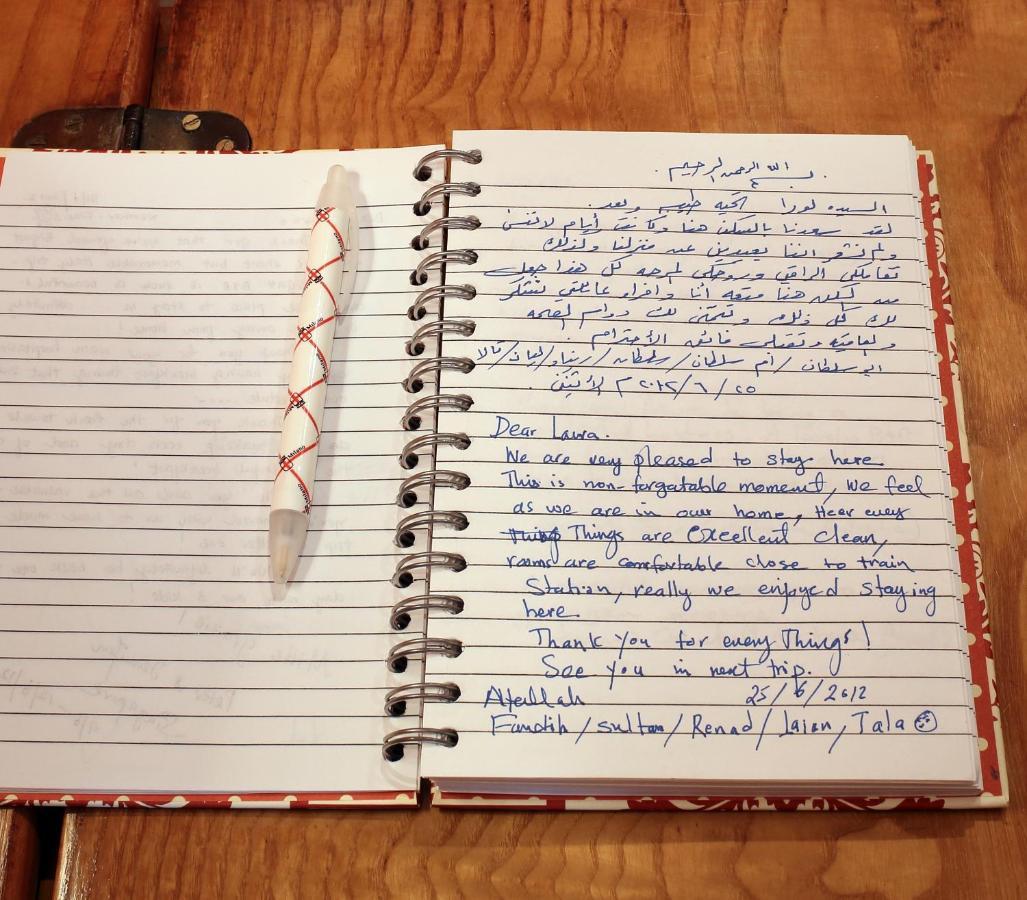 بسم الله الرحمن الرحيم
السيده لورا تحيه طيبه وبعد
لقد سعدنا بالسكن هنا وكانت أيام لا تنسى
ولم نشعر اننا بعيدين عن منزلنا ولذلك
تعاملكي الراقي وروحكي المرحه كل هذا جعل
من السكن هنا متعه أنا وافراد عائلتي نشكر
لك كل ذلك ونتمنى لك دوام الصحه
والعافيه وتقبلي فائق الأحترام
ابو سلطان / أم سلطان / سلطان / ريناد / ليان / تالا
٢٥ / ٦ / ٢٠١٢ م الأثنين
Dear Laura.
We are very pleased to stay here.
This is non-forgatable moment, we feel
as we are in our home, Hear every
Things are Excellent clean,
rooms are comfortable close to train
Station, really we enjoyed staying
here.
Thank You for every Things!
See You in next trip.
25/6/2012
/ Sultan / Renad / Laian, Tala
Milano